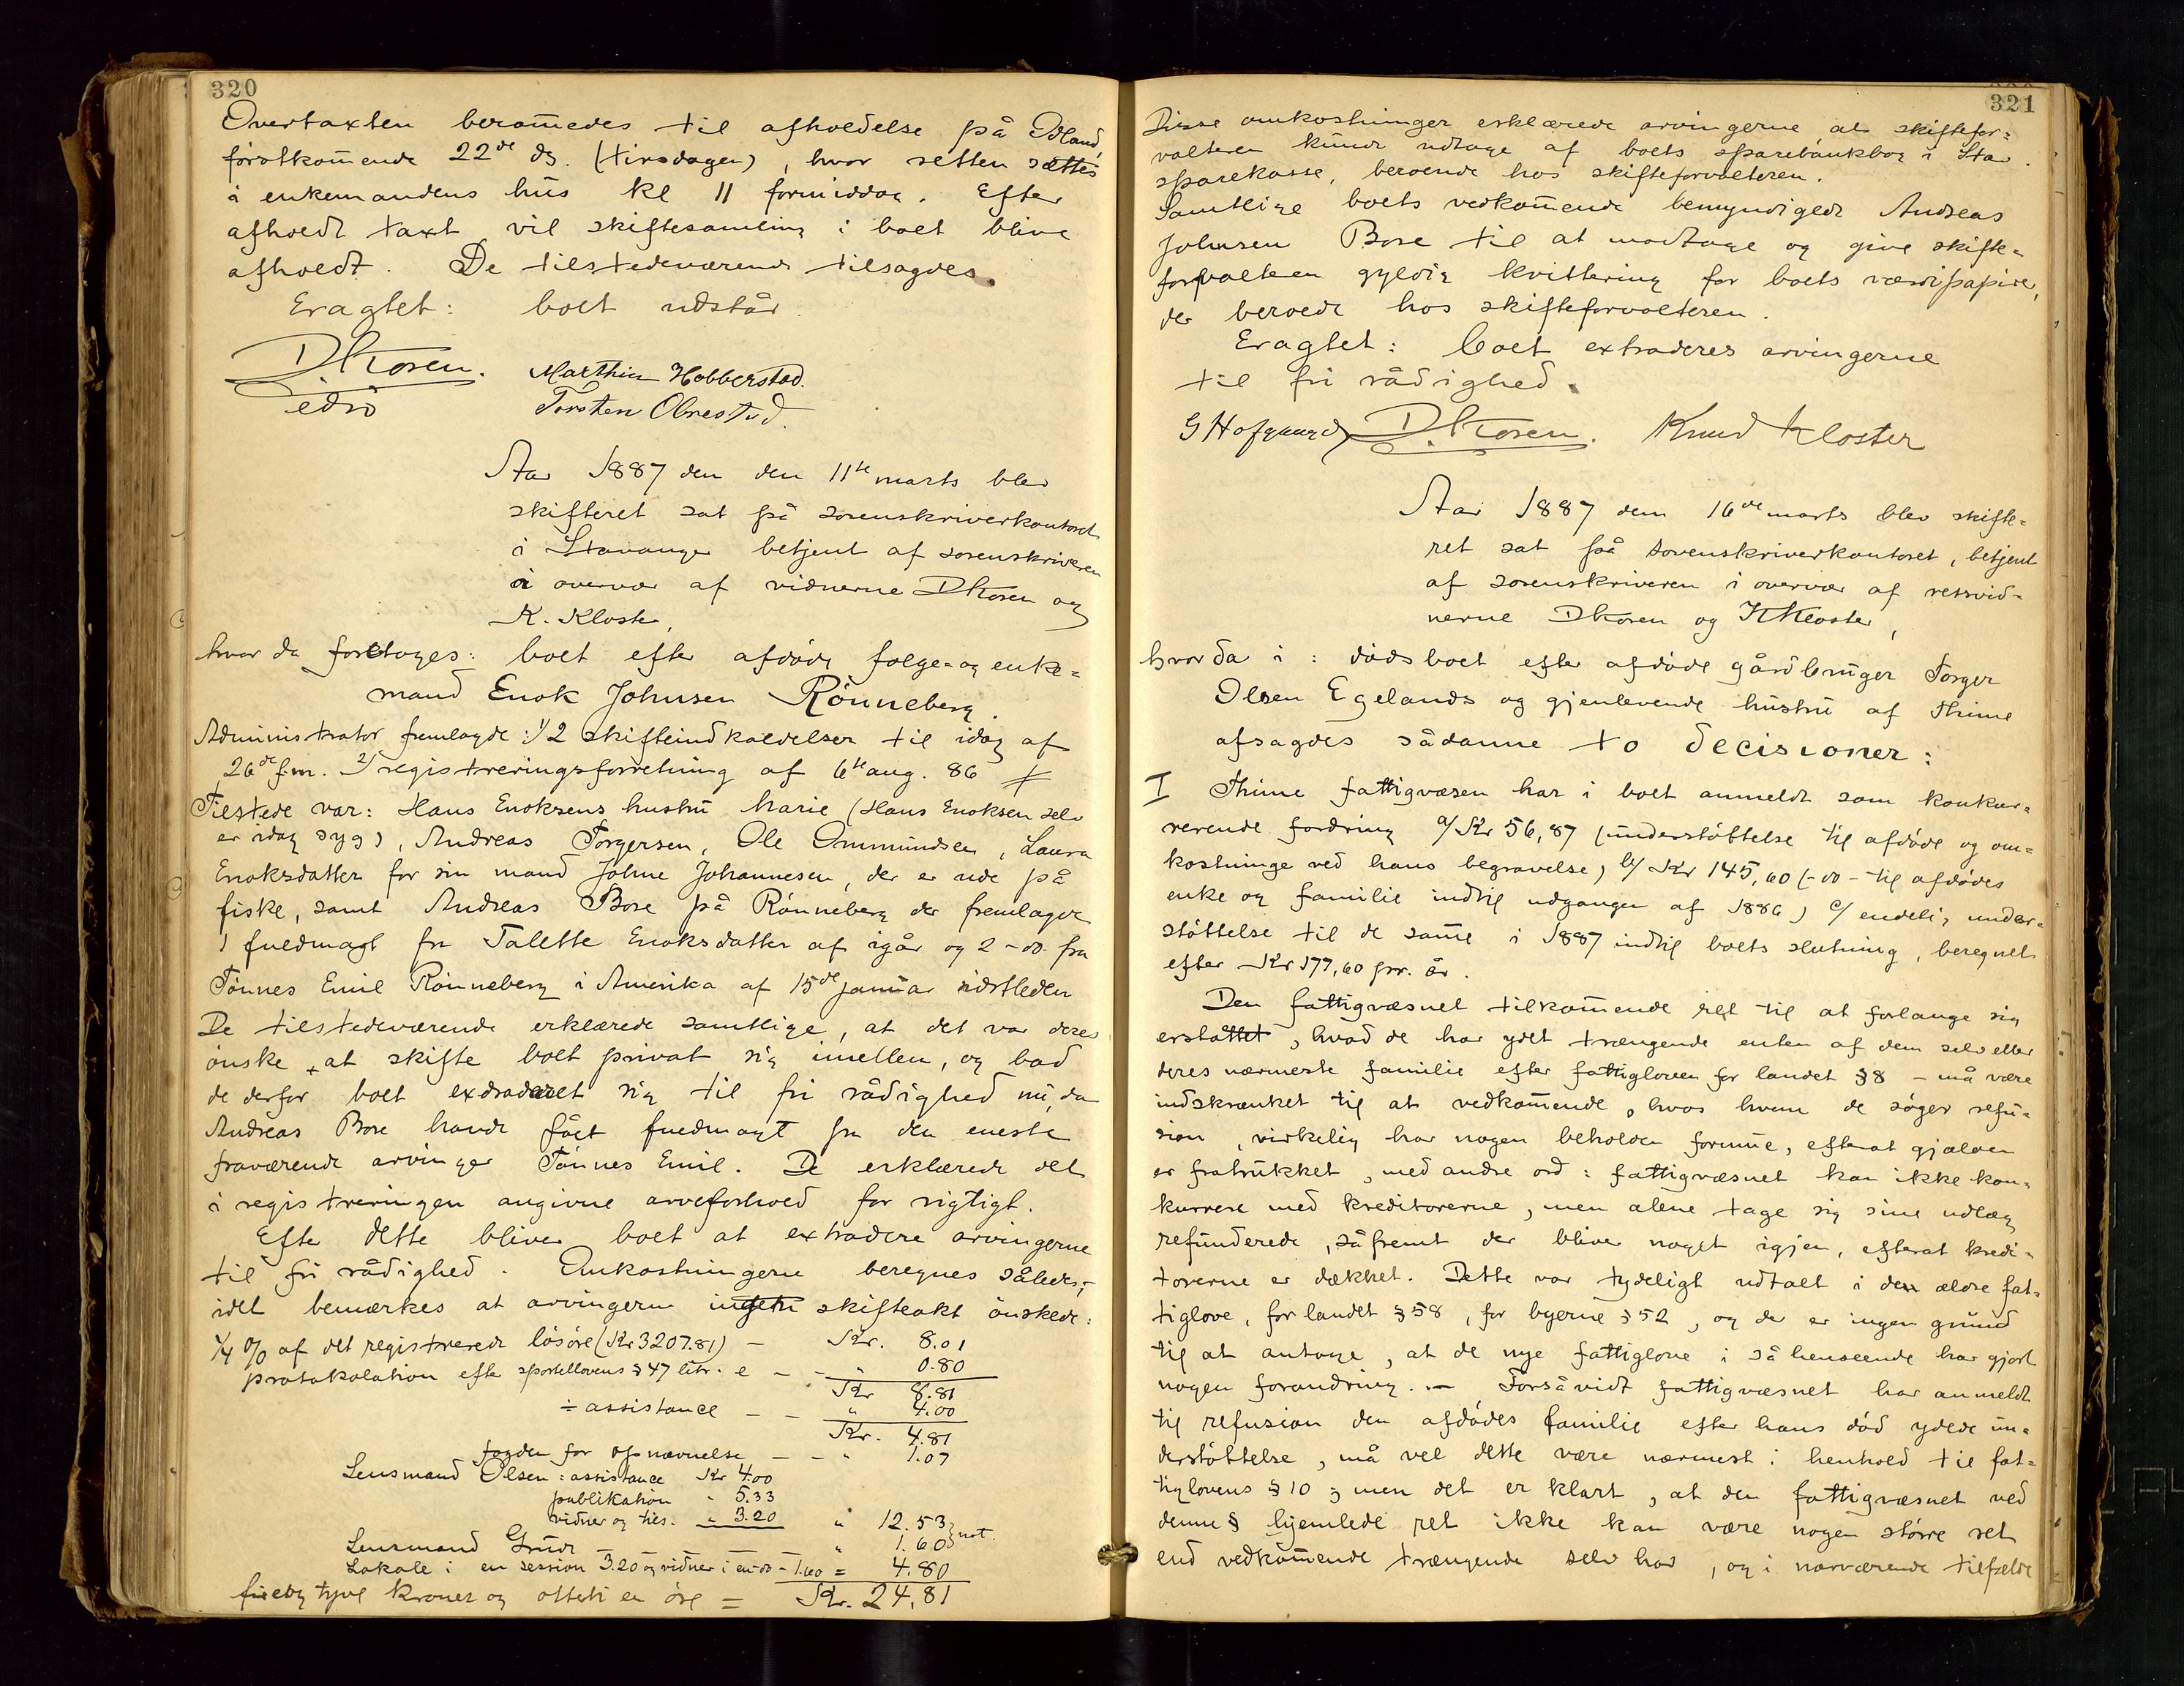 320
Overtaxten beramedes til afholdelse på
førstkommende 22de ds. (tirsdagen), hvor retten sættes
i enkemandens hus kl 11 formiddag. Efter
afholdt taxt vil skiftesamling i boet blive
afholdt. De tilstedeværende tilsagdes.
Eragtet: boet udstår.
DKoren. Marthin Hobberstad.
edsv Torsten Obrestad.
Aar 1887 den den 11te marts blev
skifteret sat på sorenskriverkontoret
i Stavanger betjent af sorenskriveren
i overvær af vidnerne DKoren og
K. Kloster,
hvor da foretoges: boet efter afdøde følge- og enke=
mand Enok Johnsen Rönneberg.
Administrator fremlagde: 1/ 2 skifteindkaldelser til idag af
26de f.m. 2/ registreringsforretning af 6te aug. 86
Tilstede var: Hans Enoksens hustru Marie (Hans Enoksen selv
er idag syg), Andreas Torgersen, Ole Ommundsen, Laura
Enoksdatter for sin mand Johne Johannesen, der er ude på
fiske, samt Andreas Bore på Rönneberg der fremlagde
1 fuldmagt fra Talette Enoksdatter af igår og 2 - do. fra
Tönnes Emil Rönneberg i Amerika af 15de januar sidstleden
De tilstedeværende erklærede samtlige, at det var deres
ønske at skifte boet privat sig imellem, og bad
de derfor boet extraderet sig til fri rådighed nu, da
Andreas Bore havde fået fuldmagt fra den eneste
fraværende arvinger Tönnes Emil. De erklærede det
i registreringen angivne arveforhold for rigtigt.
Efter dette bliver boet at extradere arvingerne
til fri rådighed. Omkostningerne beregnes således,
idet bemærkes at arvingerne ingen skifteakt ønskede:
1/4 % af det registrerede løsøre (Kr 3207.81) - Kr. 8.01
protokolation efter sportellovens § 47 litr. e - - " 0.80
Kr 8.81
÷ assistance - - " 4.00
Kr. 4.81
fogden for opnævnelse - - " 1.07
Lensmand Olsen: assistance Kr 4.00
publikation " 5.33
vidner og tils. " 3.20 " 12.53
Lensmand Grude - - " 1.60 } not.
Lokale i en session 3.20 og vidner i en do - 1.60 = 4.80
fireogtyve kroner og otteti en øre = Kr. 24,81
321
Disse omkostninger erklærede arvingerne at skiftefor=
valteren kunde udtage af boets sparebankbog i Stav.
sparekasse, beroende hos skifteforvalteren.
Samtlige boets vedkommende bemyndigede Andreas
Johnsen Bore til at modtage og give skifte=
forvalteren gyldig kvittering for boets værdipapirer,
der beroede hos skifteforvalteren.
Eragtet: Boet extraderes arvingerne
til fri rådighed.
G Hofgaard DKoren. Knud Kloster
Aar 1887 den 16de marts blev skifte=
ret sat på sorenskriverkontoret, betjent
af sorenskriveren i overvær af retsvid=
nerne DKoren og KKloster,
hvor da i: dødsboet efter afdøde gårdbruger Torger
Olsen Egelands og gjenlevende hustru af Thime
afsagdes sådanne to decisioner:
I Thime fattigvæsen har i boet anmeldt som konkur=
rerende fordring a/ Kr 56,87 (understøttelse til afdøde og om=
kostninge ved hans begravelse) b/ Kr 145,60 (- do - til afdødes
enke og familie indtil udgangen af 1886) c/ endelig under=
støttelse til de samme i 1887 indtil boets slutning, beregnet
efter Kr 177,60 pr. år.
Den fattigvæsnet tilkommende ret til at forlange sig
erstattet, hvad de har ydet trængende enten af dem selv eller
deres nærmeste familie efter fattigloven for landet § 8 - må være
indskrænket til at vedkommende, hvos hvem de søger refu=
sion, virkelig har nogen beholden formue, efterat gjælden
er fratrukket, med andre ord: fattigvæsnet kan ikke kon=
kurrere med kreditorerne, men alene tage sig sine udlæg
refunderede, såfremt der bliver noget igjen, efterat kredi=
torerne er dækket. Dette var tydeligt udtalt i den ældre fat=
tiglove, for landet § 58, for byerne § 52, og der er ingen grund
til at antage, at de nye fattiglove i så henseende har gjort
nogen forandring. - Forsåvidt fattigvæsnet har anmeldt
til refusion den afdødes familie efter hans død ydede un=
derstøttelse, må vel dette være nærmest i henhold til fat=
tiglovens § 10; men det er klart, at den fattigvæsnet ved
denne § hjemlede ret ikke kan være nogen større ret
end vedkommende trængende selv har, og i nærværende tilfælde